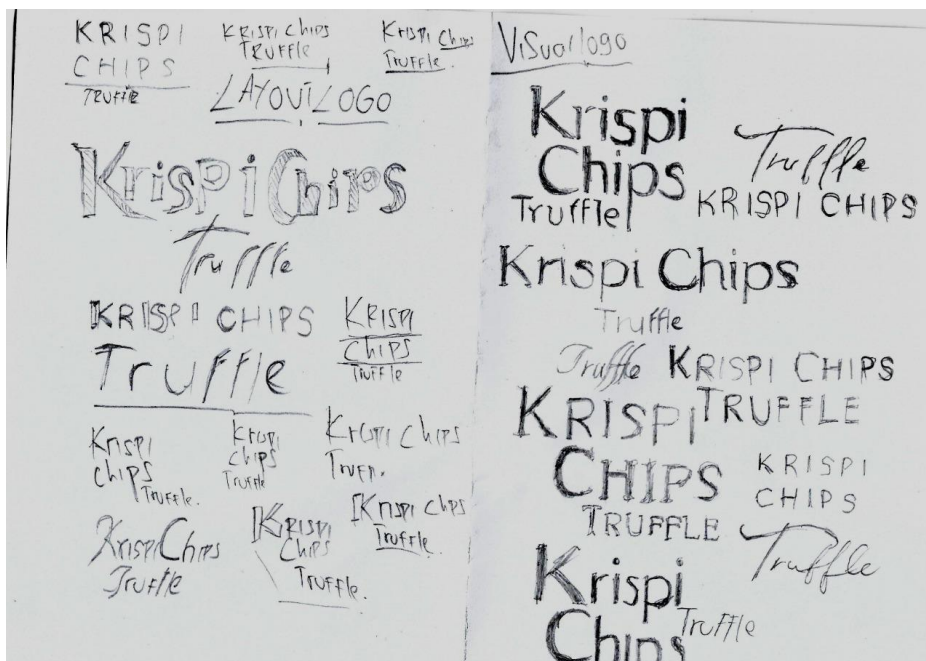 KRISPI
CHIPS
TRUFFlE
KRISPI CHIPS
TRUFFLE
KRISPI Chips
Truffle.
LAYOUT LOGO
Krispi Chips
Truffle
KRISPI CHIPS
Truffle
KRISPI
CHIPS
TRUFFlE
Krispi
chips
Truffle.
Krispi
chips
Truffle
Krispi chips
KrispiChips
Truffle
KRISPI
Chips
Truffle.
Krispi chps
Truffle.
ViSual logo
Krispi
Chips
Truffle
Truffle
KRISPI CHIPS
Krispi Chips
Truffle
Truffle
KRISPI CHIPS
KRISPI
TRUFFLE
CHIPS
TRUFFLE
KRISPI
CHIPS
Truffle
Krispi
Chips
Truffle